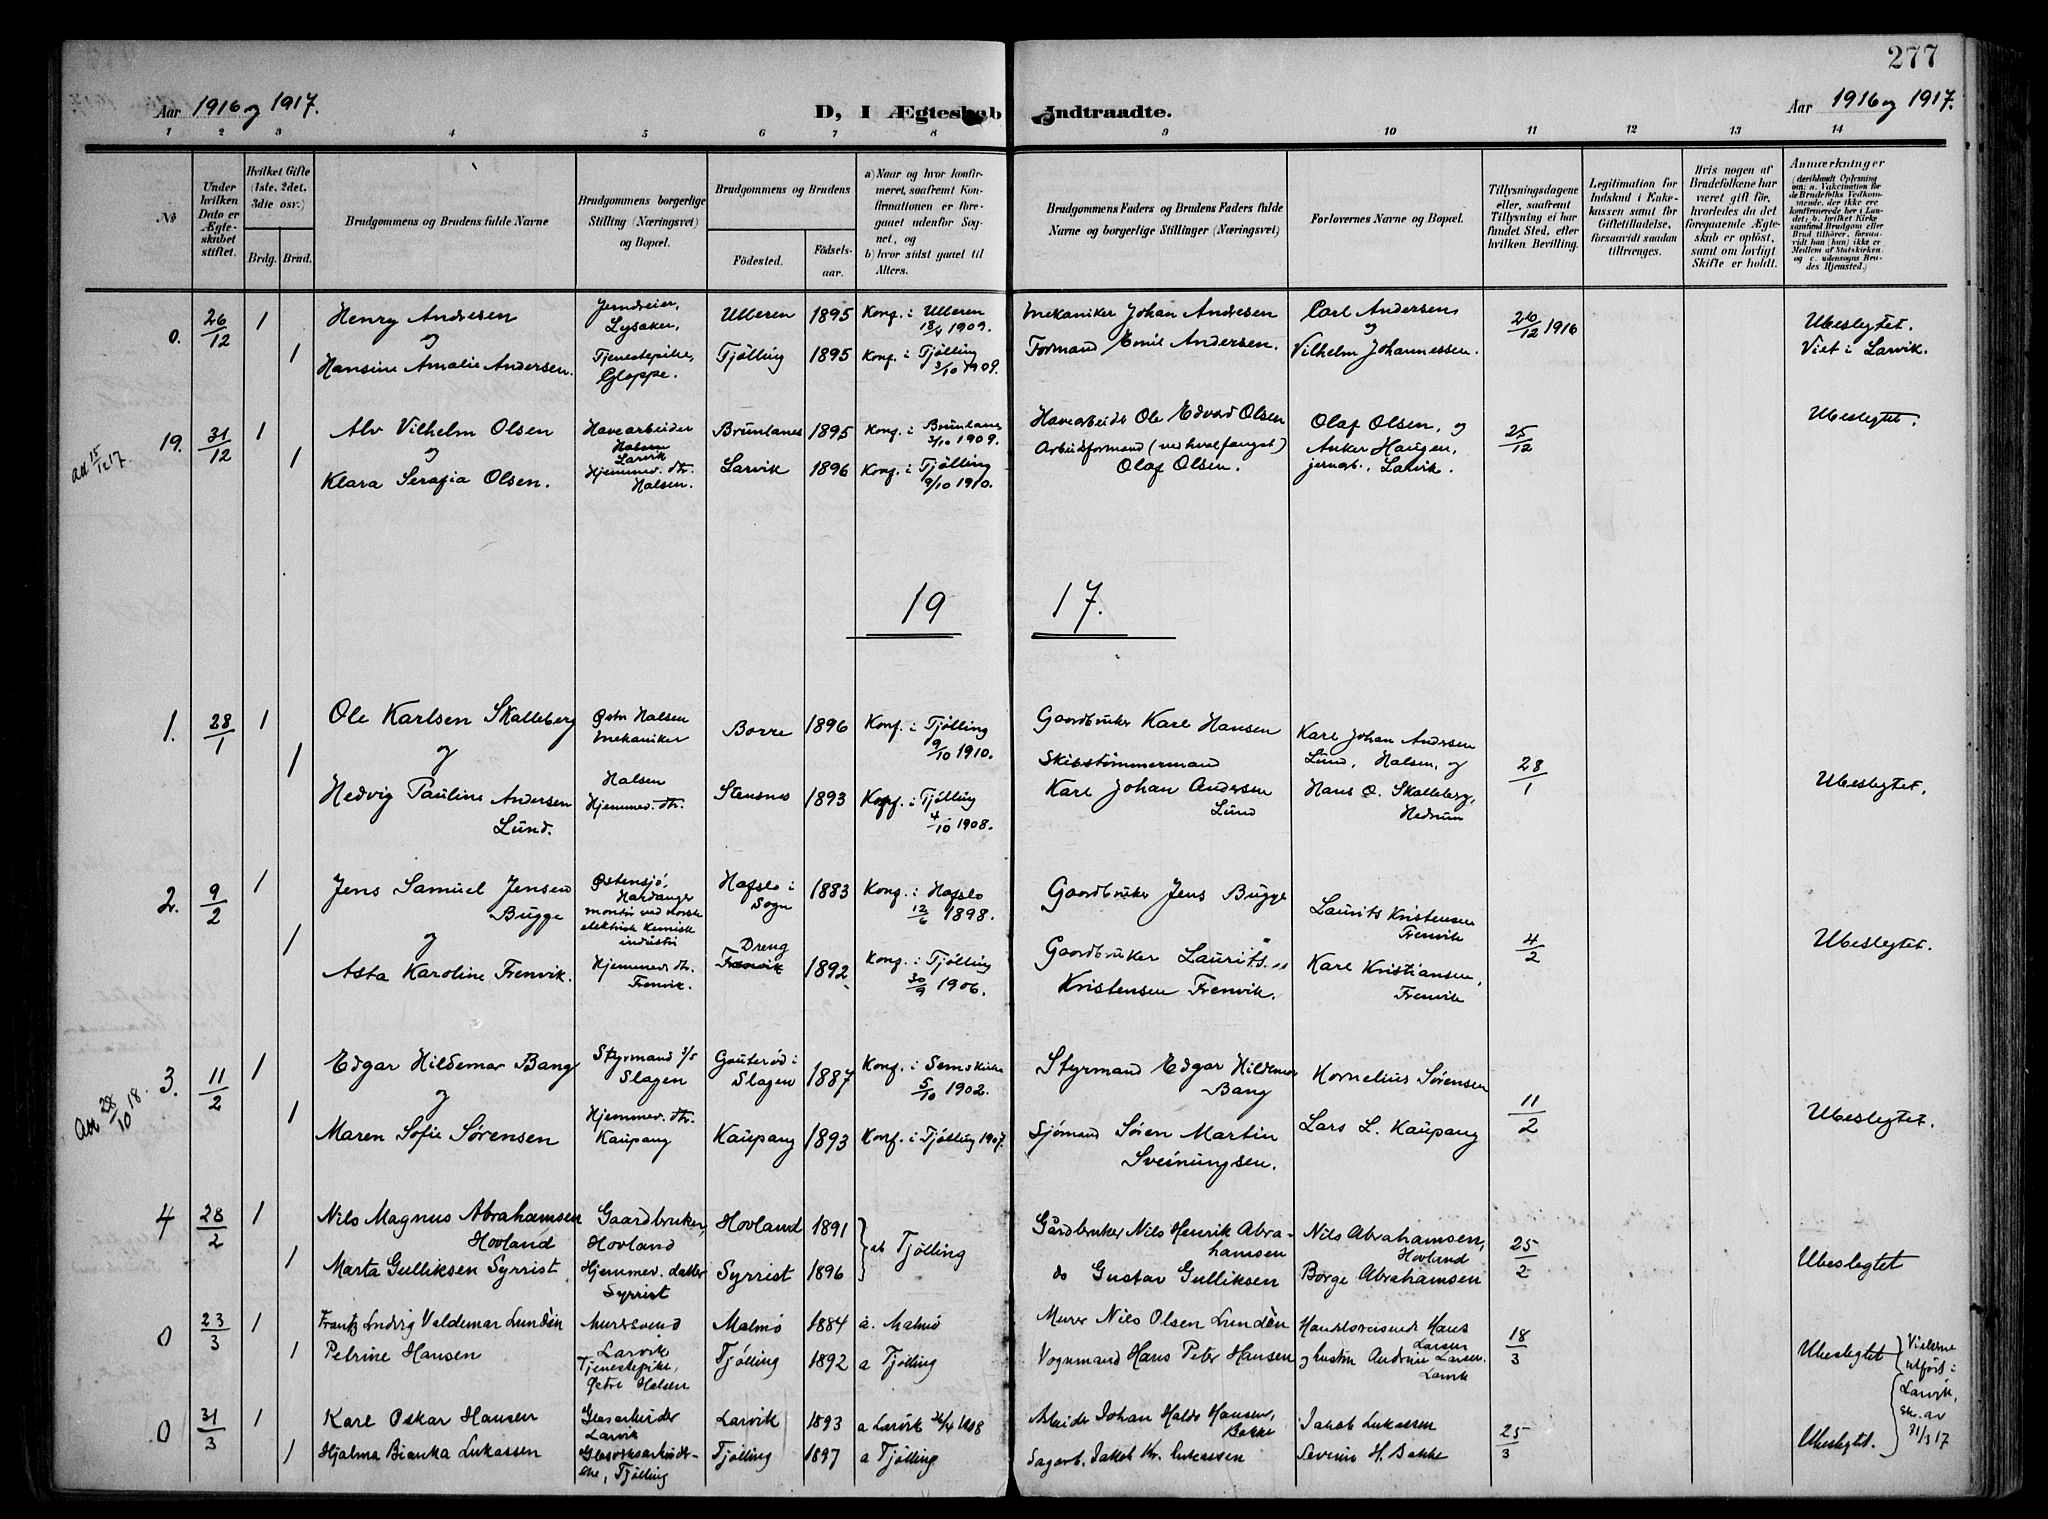 277
Aar 1916 og 1917.
D, I Ægteskab Indtraadte.
Aar 1916 og 1917.
1 2 3 4 5 6 7 8 9 10 11 12 13 14
No
Under hvilken Dato er Ægteskabet stiftet.
Hvilket Gifte (1ste, 2det, 3die osv.)
Brdg. Brud.
Brudgommens og Brudens fulde Navne
Brudgommens borgerlige Stilling (Næringsvei) og Bopæl.
Brudgommens og Brudens
Fødested.
Fødselsaar.
a) Naar og hvor konfirmeret, saafremt Konfirmationen er foregaaet udenfor Sognet, og
b) hvor sidst gaaet til Alters.
Brudgommens Faders og Brudens Faders fulde Navne og borgerlige Stillinger (Næringsvei)
Forlovernes Navne og Bopæl.
Tillysningsdagene eller, saafremt Tillysning ei har fundet Sted, efter hvilken Bevilling.
Legitimation for Indskud i Enkekassen samt for Giftetilladelse, forsaavidt saadan tiltrænges.
Hvis nogen af Brudefolkene har været gift før, hvorledes da det foregaaende Ægteskab er opløst, samt om lovligt Skifte er holdt.
Anmærkninger
(deriblandt Oplysning om: a. Vakcination for de Brudefolks Vedkommende, der ikke ere konfirmerede her i Landet; b. hvilket Kirkesamfund Brudgom eller Brud tilhører, forsaavidt han (hun) ikke er Medlem af Statskirken, og c. udensogns Brudes Hjemsted.)
0. 26/12 1 Henry Andresen Jerndreier, Lysaker, Ulleren 1895 Konf. i Ulleren 18/4 1909. Mekaniker Johan Andresen Carl Andersen 26/12 1916 Ubeslegtet.
og og Viet i Larvik.
1 Hansine Amalie Andersen. Tjenestepike, Gloppe. Tjølling 1895 Konf. i Tjølling 3/10 1909. Formand Emil Andersen. Vilhelm Johannessen.
19. 31/12 1 Alv Vilhelm Olsen Havearbeider Halsen Larvik Brunlanes 1895 Konf. i Brunlanes 3/10 1909. Havearbeidr Ole Edvard Olsen Olaf Olsen, og 25/12 Ubeslegtet.
og
1 Klara Serafia Olsen. Hjemmev. dtr. Halsen. Larvik 1896 Konf. i Tjølling 9/10 1910. Arbeidformand (ved hvalfangst) Olaf Olsen. Anker Haugen, jernarb., Larvik.
19 17.
1. 28/1 1 Ole Karlsen Skalleberg Østr Halsen mekaniker Borre 1896 Konf. i Tjølling 9/10 1910. Gaardbruker Karl Hansen Karl Johan Andersen Lund, Halsen, og 28/1 Ubeslegtet.
og
1 Hedvig Pauline Andersen Lund. Halsen Hjemmev. dtr. Stensnes 1893 Konf. i Tjølling 4/10 1908. Skibstømmermand Karl Johan Andersen Lund Hans O. Skalleberg, Hedrum
2. 9/2 1 Jens Samuel Jensen Bugge Østensjø, Hardanger montør ved norsk elektrisk kemisk industri Hafslo i Sogn 1883 Konf. i Hafslo 12/6 1898. Gaardbruker Jens Bugge Laurits Kristensen Frenvik 4/2 Ubeslegtet.
og
1 Asta Karoline Frenvik. Hjemmev. dtr. Frenvik. Dreng 1892 Konf. i Tjølling 30/9 1906. Gaardbruker Laurits Kristensen Frenvik. Karl Kristiansen, Frenvik
3. 11/2 1 Edgar Hildemar Bang Styrmand Slagen Gauterød i Slagen 1887 Konf. i Sem Kirke 5/10 1902. Styrmand Edgar Hildemar Bang Kornelius Sørensen 11/2 Ubeslegtet.
og
1 Maren Sofie Sørensen Hjemmev. dtr. Kaupang Kaupang 1893 Konf. i Tjølling 1907. Sjømand Søren Martin Sveinungsen. Lars L. Kaupang
4 28/2 1 Nils Magnus Abrahamsen Hovland Gaardbruker, Hovland Hovland 1891 ab Tjølling Gårdbruker Nils Henrik Abrahamsen Nils Abrahamsen, Hovland 25/2 Ubeslegtet
1 Marta Gulliksen Syrrist Hjemmev. datter Syrrist Syrrist 1896 do Gustav Gulliksen Borge Abrahamsen
0 23/3 1 Frantz Ludvig Valdemar Lundén Murersvend Larvik Malmø 1884 a. Malmø Murer Nils Olsen Lundén Handelsreisende Hans Larsen 18/3 Ubeslegtet
1 Petrine Hansen Tjenestepike, Østre Halsen Tjølling 1892 a Tjølling Vognmand Hans Peter Hansen og hustru Andrine Larsen. Larvik
0 31/3 1 Karl Oskar Hansen Glasarbeider Larvik Larvik 1893 a Larvik 26/4 1908 Johan Hansen, Bakke Jakob Lukassen 25/3 Ubeslegtet.
1 Hjalma Bianka Lukassen Tjølling Tjølling 1897 a Tjølling Sagarb. Jakob Kr. Lukassen Severin H. Bakke
Vielserne utført i Larvik,